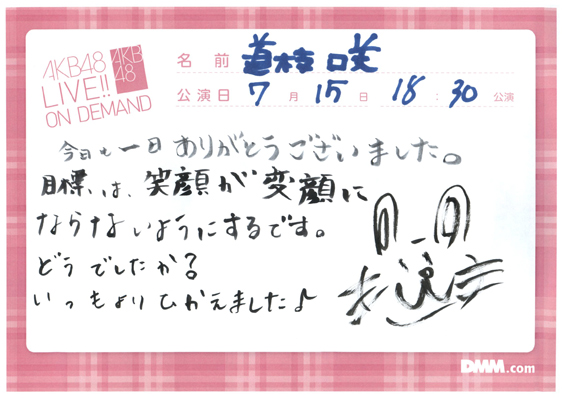 AKB48
LIVE!!
ON DEMAND
AKB
48
名前 道枝咲
公演日 7月15日 18:30公演
今日も一日ありがとうございました。
目標、は、笑顔が変顔に
ならないようにするです。
どうでしたか?
いつもよりひかえました♪
DMM.com